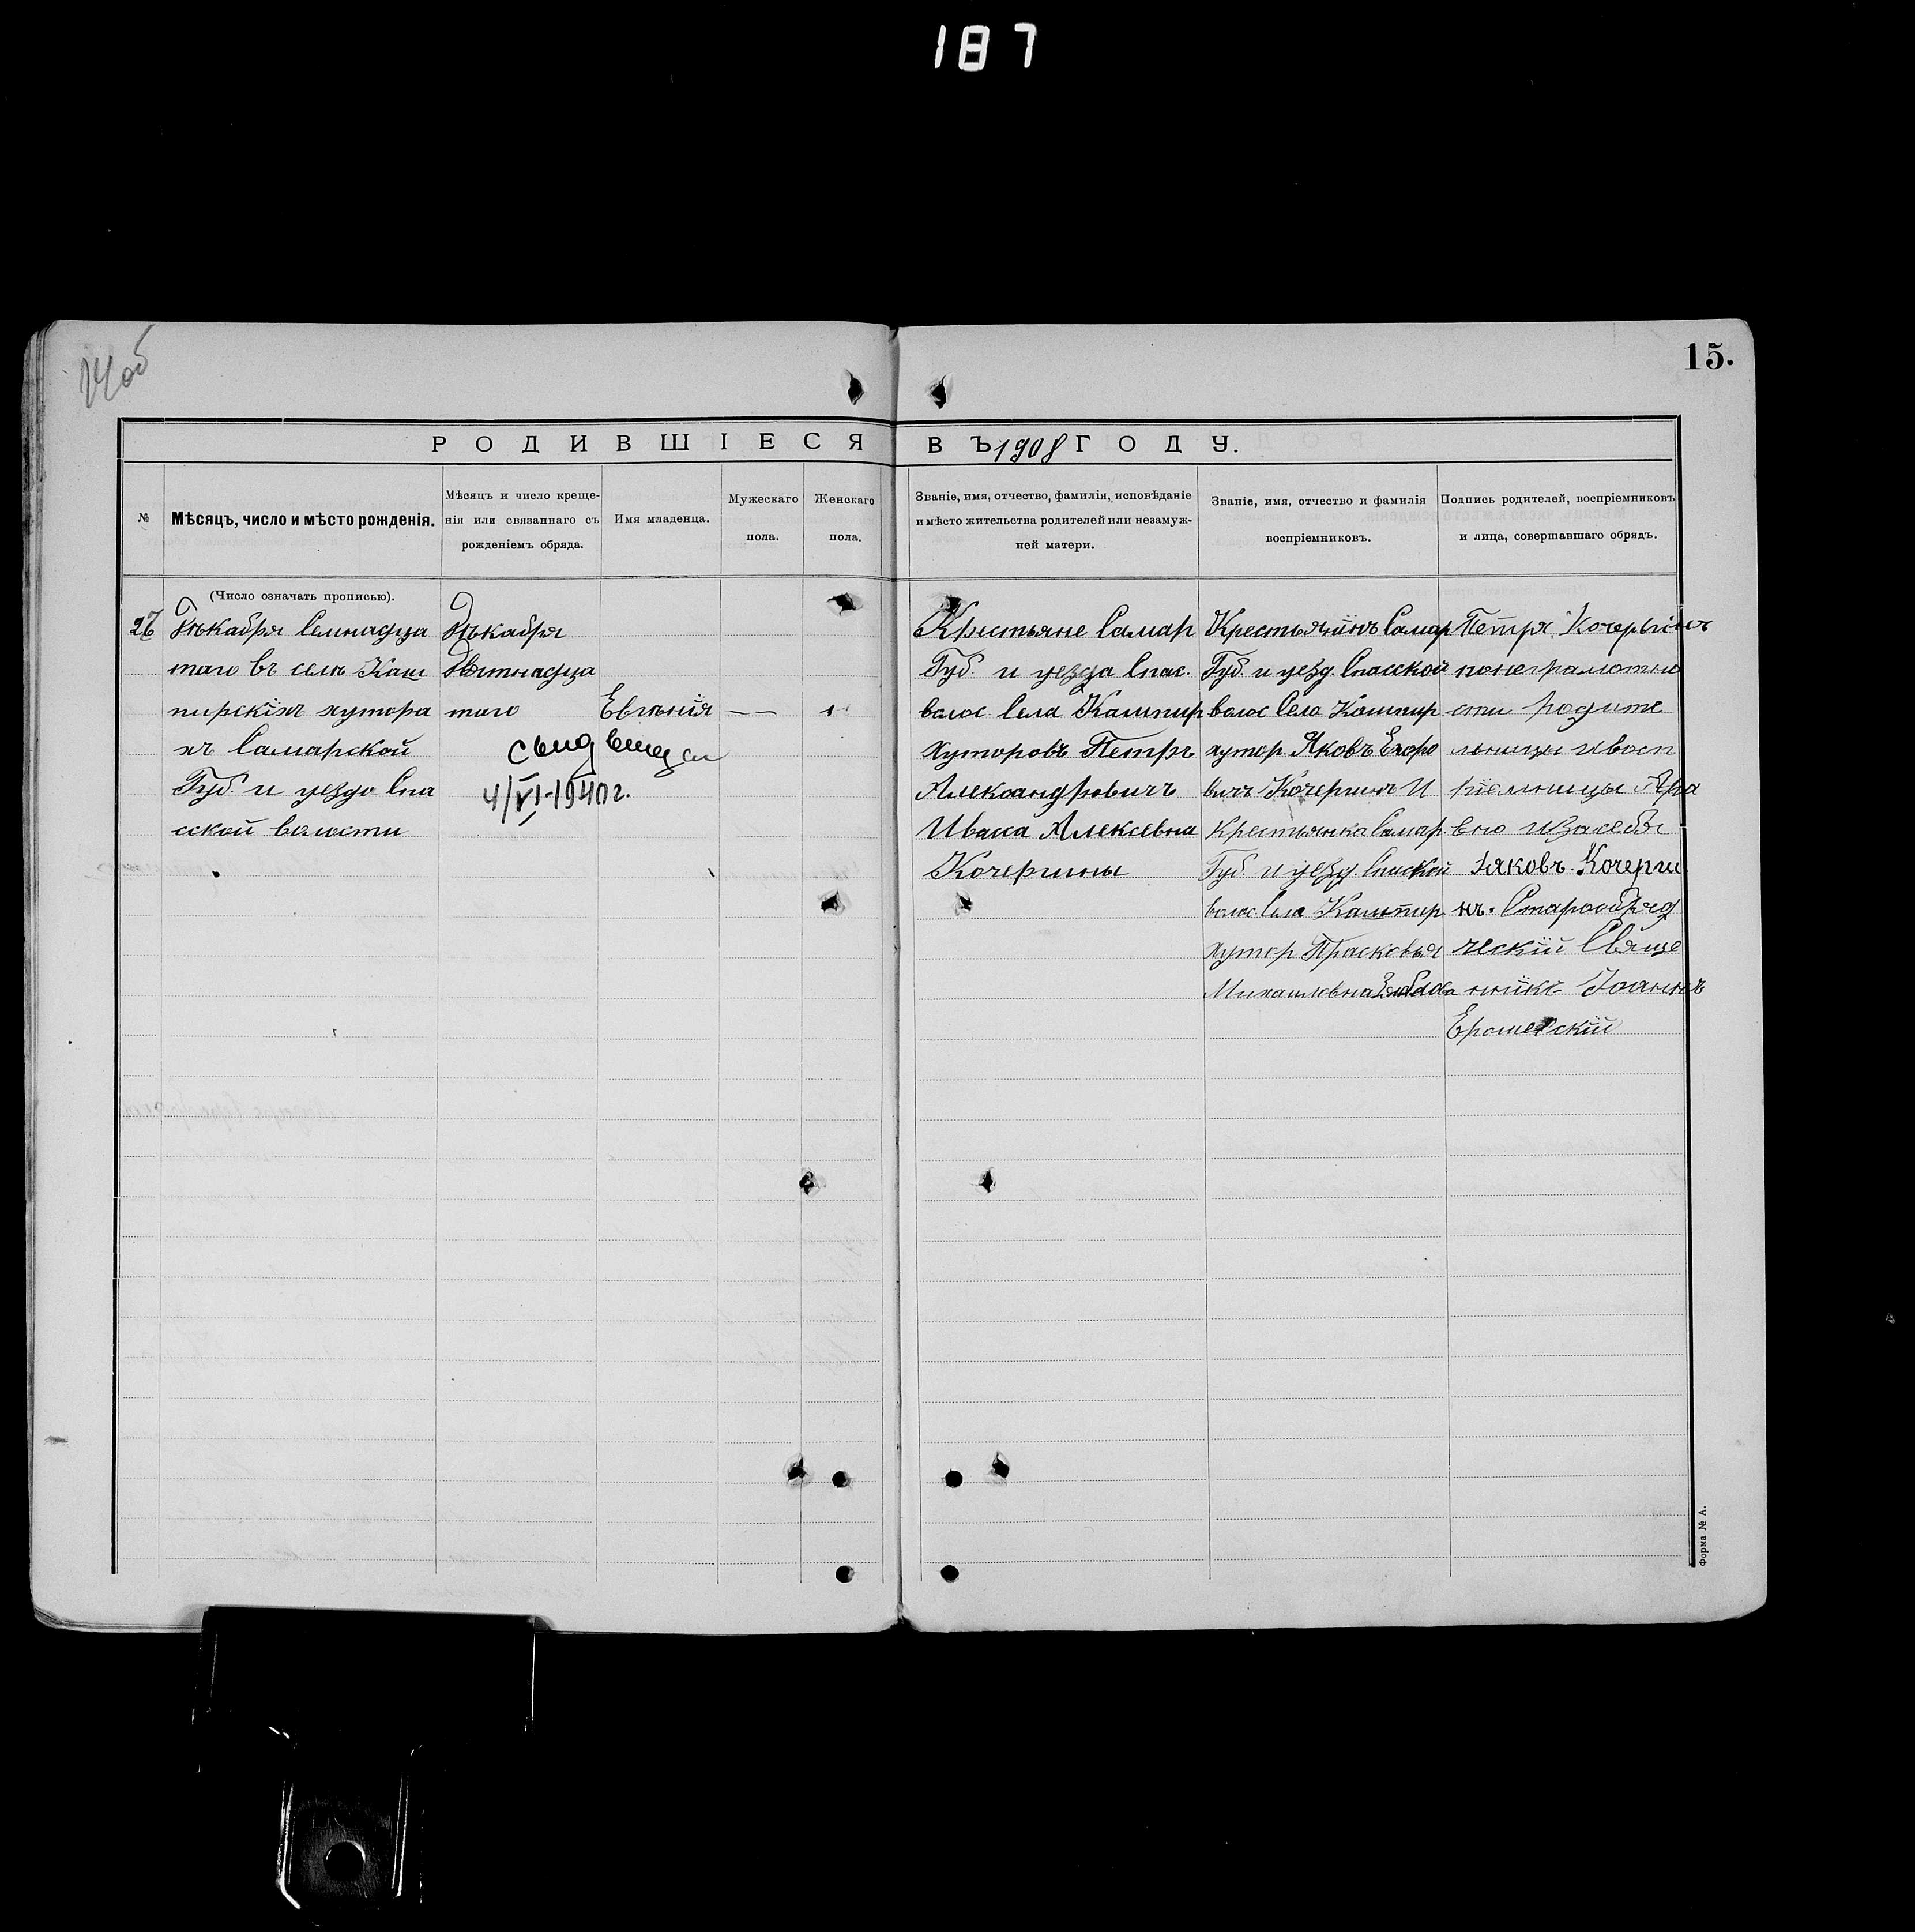 187
14об
15.
РОДИВШІЕСЯ ВЪ 1908 ГОДУ.
№
Мѣсяцъ, число и мѣсто рожденія.
Мѣсяцъ и число креще-
нія или связаннаго съ
рожденіемъ обряда.
Имя младенца.
Мужескаго
пола.
Женскаго
пола.
Званіе, имя, отчество, фамилія, исповѣданіе
и мѣсто жительства родителей или незамуж-
ней матери.
Званіе, имя, отчество и фамилія
воспріемниковъ.
Подпись родителей, воспріемниковъ
и лица, совершавшаго обрядъ.
(Число означать прописью).
26
Дѣкабря Семнадца
таго въ селѣ Каш
пирскіхъ хутора
хъ Самарской
Губ. и уезда Спа
сской волости
Дѣкабря
девятнадца
таго
Евгѣнія
— —
1
4/VI-1940г.
Крестьяне Самар
Губ. и уезда Спас.
волос Села Кашпир
Хуторовъ Петръ
Александровичъ
Алексевна
Кочергины
Крестьянинъ Самар
Губ. и уезд. Спасской
волос Село Кашпир
хутор. Яковъ Егоро
вичъ Кочергинъ И
Крестьянка Самар.
Губ и уезд. Спаской
волос Села Кашпир
хутор Прасковья
Михаиловна
Петръ Кочергинъ
понеграмотно
сти родите
льницы и восп
ріемницы Пра
вно изасебя
Яковъ Кочерги
нъ. Старообряд
ческій Свяще
нникъ Іоаннъ
Форма № А.